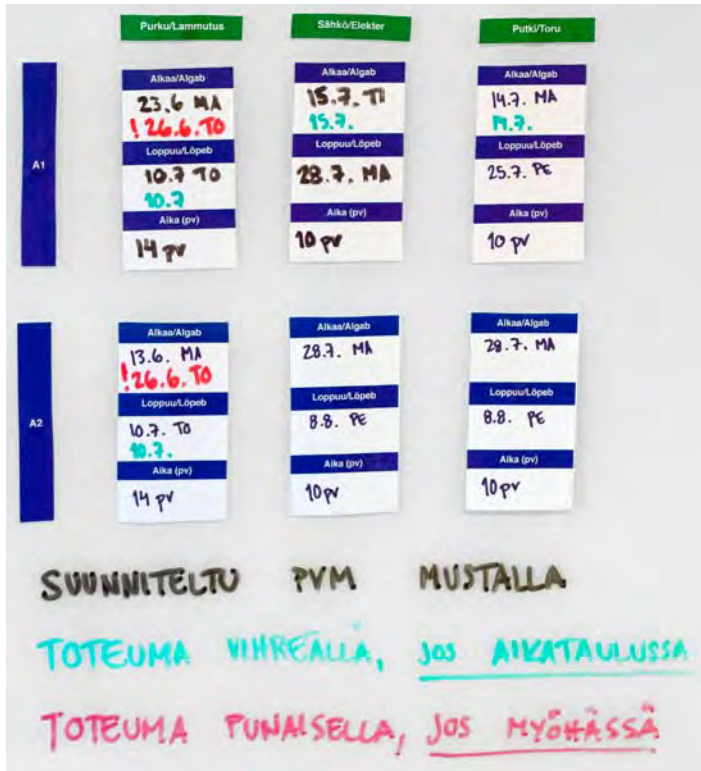 Purku/Lammutus Sähkö/Elekter Putki/Toru
A1
Alkaa/Algab
23.6 MA
! 26.6. TO
Loppuu/Lõpeb
10.7 TO
10.7
Aika (pv)
14 pv
Alkaa/Algab
15.7. TI
15.7.
Loppuu/Lõpeb
28.7. MA
Aika (pv)
10 pv
Alkaa/Algab
14.7. MA
14.7.
Loppuu/Lõpeb
25.7. PE
Aika (pv)
10 pv
A2
Alkaa/Algab
13.6. MA
! 26.6. TO
Loppuu/Lõpeb
10.7. TO
10.7.
Aika (pv)
14 pv
Alkaa/Algab
28.7. MA
Loppuu/Lõpeb
8.8. PE
Aika (pv)
10pv
Alkaa/Algab
28.7. MA
Loppuu/Lõpeb
8.8. PE
Aika (pv)
10pv
SUUNNITELTU PVM MUSTALLA
TOTEUMA VIHREÄLLÄ, JOS AIKATAULUSSA
TOTEUMA PUNAISELLA, JOS MYÖHÄSSÄ